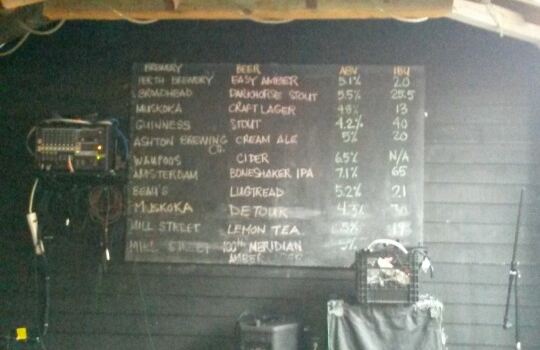 BREWERY BEER ABV IBU
PERTH BREWERY EASY AMBER 5.1% 20
BROADHEAD DARKHORSE STOUT 5.5% 25.5
MUSKOKA CRAFT LAGER 4.9% 13
GUINNESS STOUT 4.2% 40
ASHTON BREWING CO. CREAM ALE 5% 20
WAUPOOS CIDER 6.5% N/A
AMSTERDAM BONESHAKER IPA 7.1% 65
BEAU'S LUGTREAD 5.2% 21
MUSKOKA DETOUR 4.3% 30
MILL STREET LEMON TEA 5% 
MILL STREET 100TH MERIDIAN 5%
AMBER